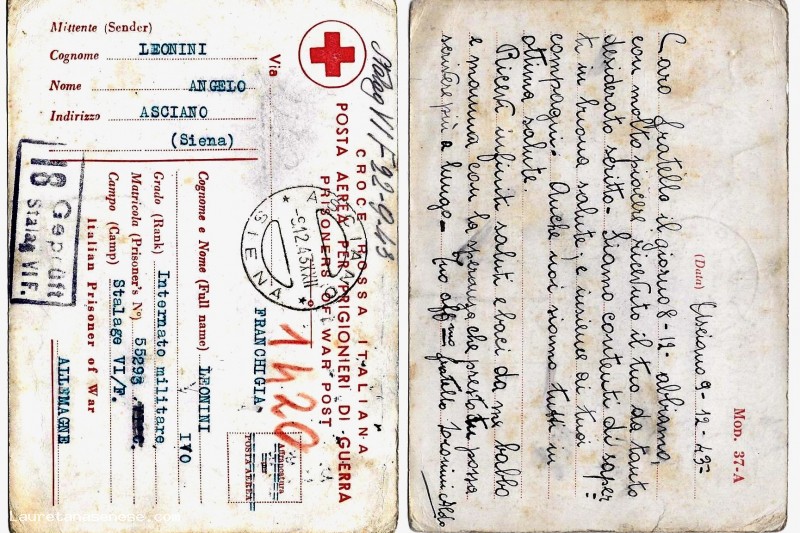 Mittente (Sender)
Cognome LEONINI
Nome ANGELO
Indirizzo ASCIANO
(Siena)
Via
CROCE ROSSA ITALIANA
POSTA AEREA PER PRIGIONIERI DI GUERRA
PRISONERS OF WAR POST
FRANCHIGIA
Affrancatura
per
POSTA AEREA
Stalag VI F 22-9-43
ASCIANO
9.12.43 XXII
SIENA
1420
Cognome e Nome (Full name) LEONINI
IVO
Grado (Rank) Internato militare
Matricola (Prisoner's No) 55293
Campo (Camp) Stalage VI/F.
Italian Prisoner of War
ALLEMAGNE
18 Geprüft
Stalag VI F.
Lauretanasenese.com
Mod. 37-A
(Data) Asciano 9-12-43
Caro fratello il giorno 8-12- abbiamo,
con molto piacere ricevuto il tuo da tanto
desiderato scritto- Siamo contenti di saper=
ti in buona salute, e insieme ai tuoi
compagni- Anche noi siamo tutti in
ottima salute.
Ricevi infiniti saluti e baci da me babbo
e mamma con la speranza che presto tu possa
scrivere più a lungo- Tuo aff.mo fratello Leonini Aldo